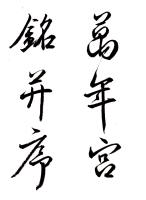 萬年宮
銘并序